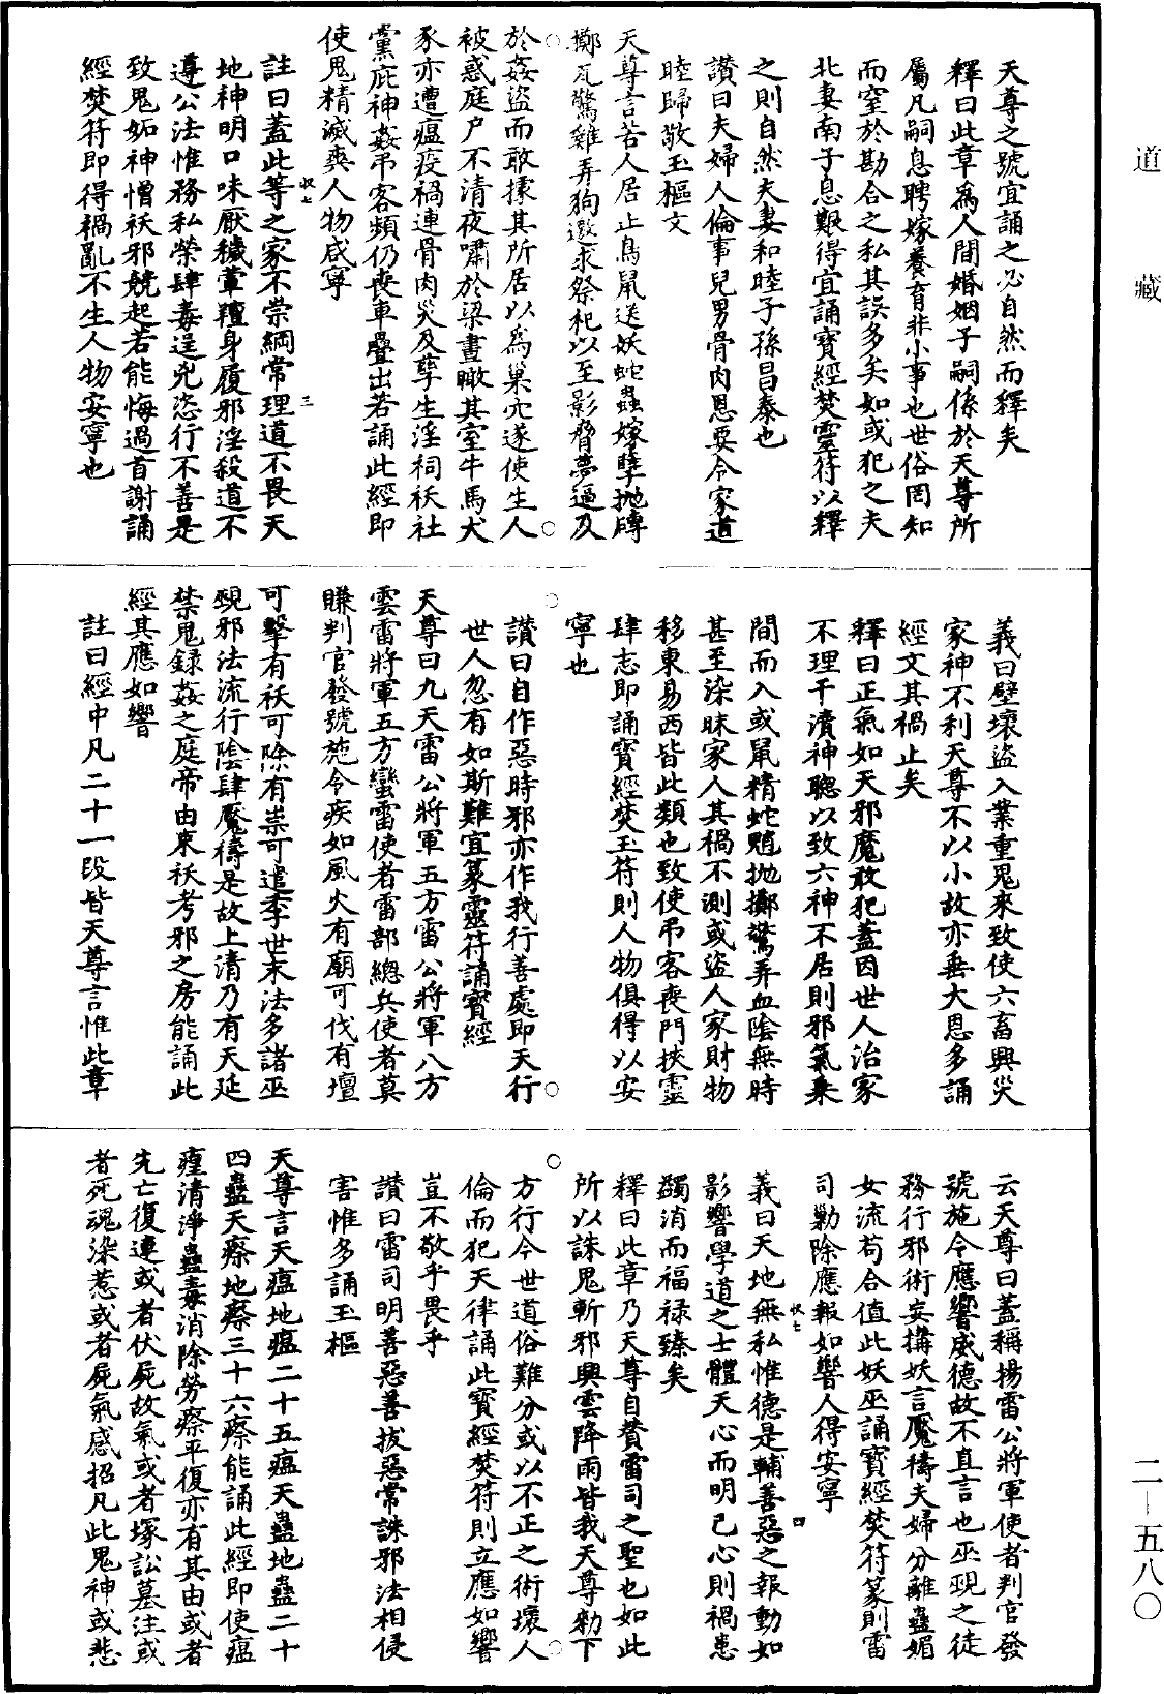 道藏
二—五八〇
天尊之號宜誦之必自然而釋矣
釋曰此章爲人間婚姻子嗣係於天尊所
屬凡嗣息聘嫁養育非小事也世俗罔知
而窒於勘合之私其誤多矣如或犯之夫
北妻南子息艱得宜誦寶經焚靈符以釋
之則自然夫妻和睦子孫昌泰也
讚曰夫婦人倫事兒男骨肉恩要令家道
睦歸敬玉樞文
天尊言若人居止鳥鼠送妖蛇蟲嫁孽抛磚
擲瓦驚雞弄狗邀求祭祀以至影脅夢逼及
於姦盜而敢據其所居以爲巢穴遂使生人
被惑庭户不清夜嘯於梁晝瞰其室牛馬犬
豕亦遭瘟疫禍連骨肉災及孳生淫祠祅社
黨庇神姦弔客頻仍喪車疊出若誦此經即
使鬼精滅爽人物咸寧
註曰蓋此等之家不崇綱常理道不畏天
地神明口味厭穢葷羶身履邪淫殺道不
遵公法惟務私榮肆毒逞兇恣行不善是
致鬼妬神憎祅邪競起若能悔過首謝誦
經焚符即得禍亂不生人物安寧也
義曰壁壞盜入業重鬼來致使六畜興災
家神不利天尊不以小故亦垂大恩多誦
經文其禍止矣
釋曰正氣如天邪魔敢犯蓋因世人治家
不理干瀆神聰以致六神不居則邪氣乘
間而入或鼠精蛇魈抛擲驚弄血陰無時
甚至染昧家人其禍不測或盜人家財物
移東易西皆此類也致使弔客喪門挾靈
肆志即誦寶經焚玉符則人物俱得以安
寧也
讚曰自作惡時邪亦作我行善處即天行
世人忽有如斯難宜篆靈符誦寶經
天尊曰九天雷公將軍五方雷公將軍八方
雲雷將軍五方蠻雷使者雷部總兵使者莫
賺判官發號施令疾如風火有廟可伐有壇
可擊有祅可除有祟可遣季世末法多諸巫
覡邪法流行陰肆魘禱是故上清乃有天延
禁鬼録姦之庭帝由束祅考邪之房能誦此
經其應如響
註曰經中凡二十一段皆天尊言惟此章
云天尊曰蓋稱揚雷公將軍使者判官發
號施令應響威德故不直言也巫覡之徒
務行邪術妄搆妖言魘禱夫婦分離蠱媚
女流苟合值此妖巫誦寶經焚符篆則雷
司勦除應報如響人得安寧
義曰天地無私惟德是輔善惡之報動如
影響學道之士體天心而明己心則禍患
蠲消而福禄臻矣
釋曰此章乃天尊自贊雷司之聖也如此
所以誅鬼斬邪興雲降雨皆我天尊勑下
方行今世道俗難分或以不正之術壞人
倫而犯天律誦此寶經焚符則立應如響
豈不敬乎畏乎
讚曰雷司明善惡善拔惡常誅邪法相侵
害惟多誦玉樞
天尊言天瘟地瘟二十五瘟天蠱地蠱二十
四蠱天瘵地瘵三十六瘵能誦此經即使瘟
㾮清淨蠱毒消除勞瘵平復亦有其由或者
先亡復連或者伏屍故氣或者塚訟墓注或
者死魂染惹或者屍氣感招凡此鬼神或悲